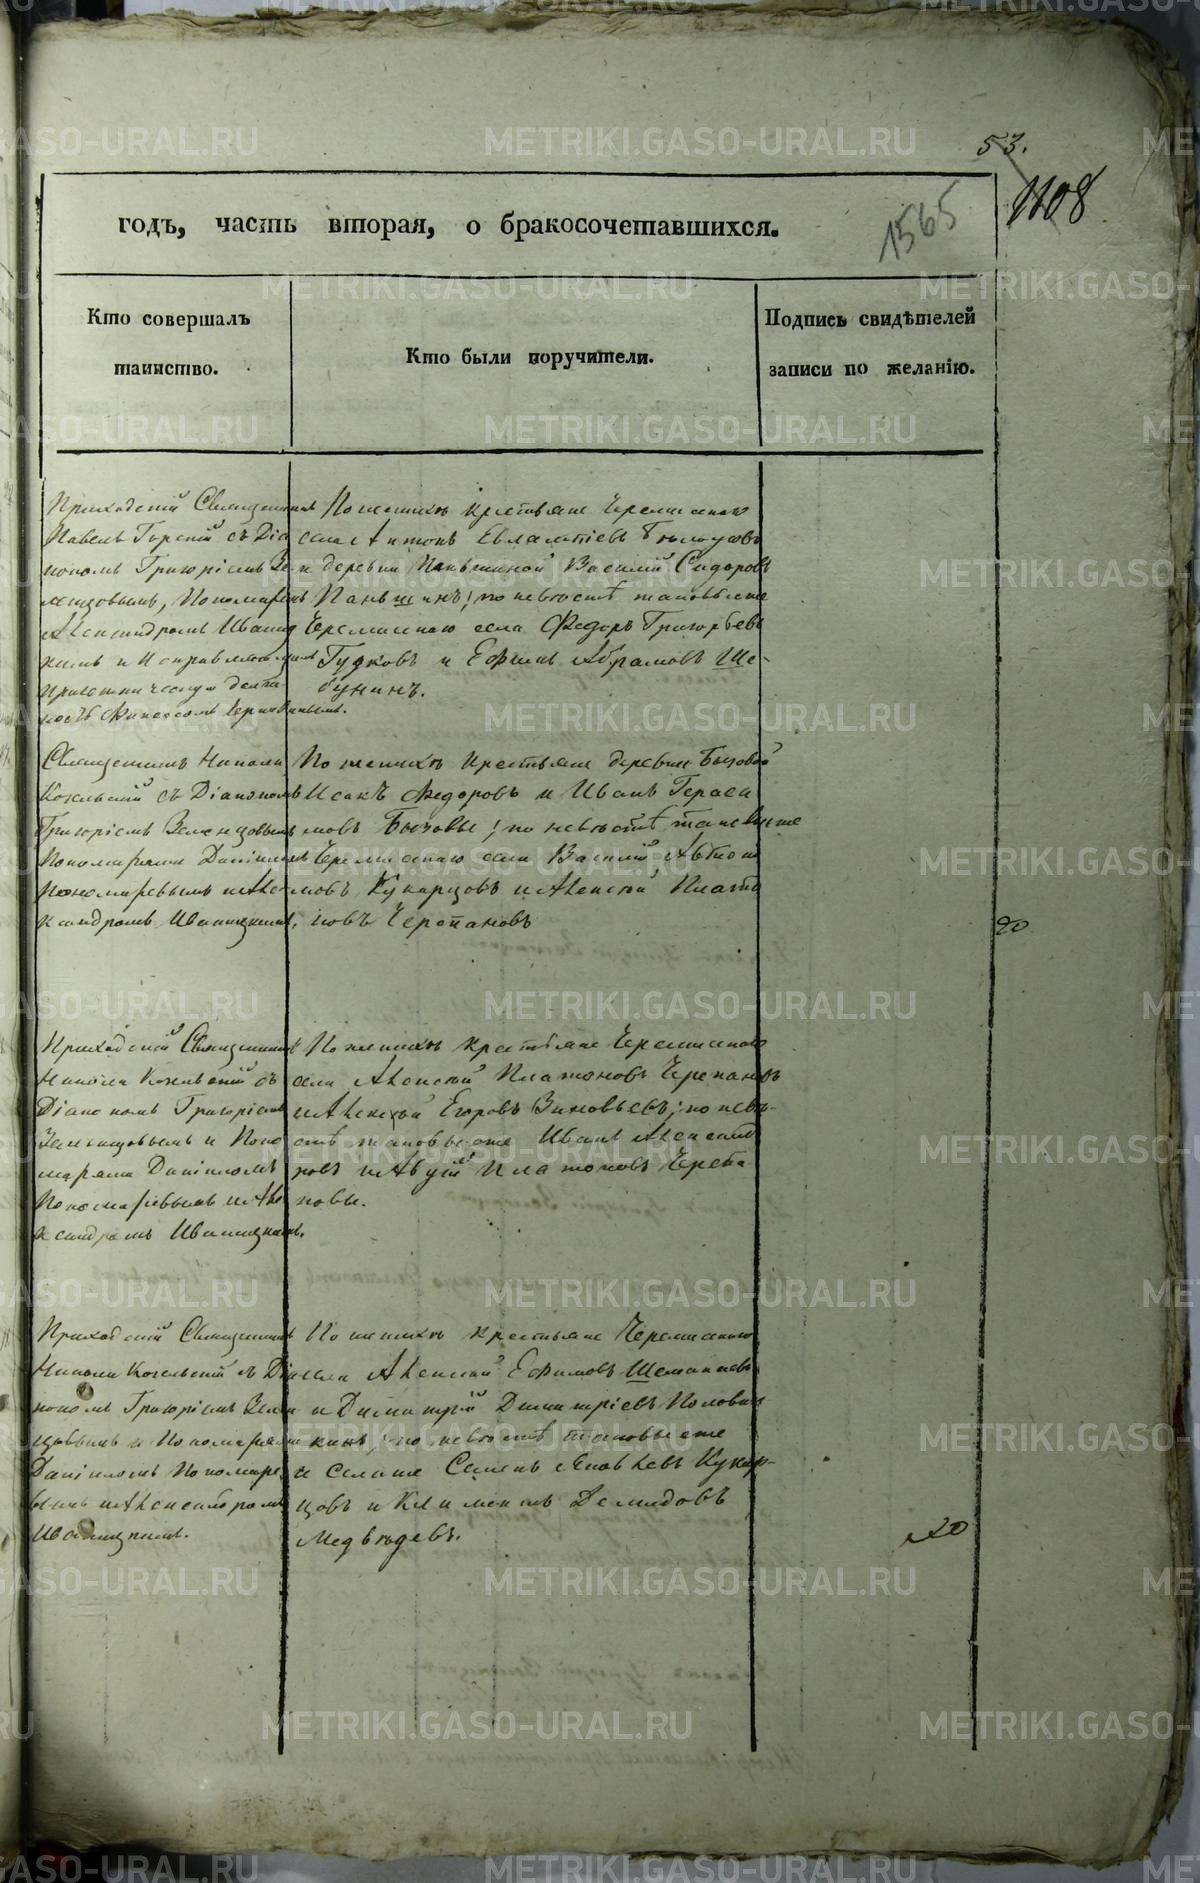 53.
1108
1565
годъ, часть вторая, о бракосочетавшихся.
Кто совершалъ
таинство.
Кто были поручители.
Подпись свидѣтелей
записи по желанію.
Приходскій Священникъ
Павелъ Горскій съ Діа
кономъ Григоріемъ Зеле
нцовымъ, Пономаремъ
Александромъ Иваниц
кимъ и Исправляющимъ
причетническую должн
ность
По женихѣ крестьяне Черемискаго
села Антонъ Евлампіевъ
и деревни Паньшиной Василій Сидоровъ
Паньшинъ; по невѣстѣ таковые же
Черемискаго села Федоръ Григорьевъ
Гудковъ и Ефимъ Абрамовъ Ше-
бунинъ.
Священникъ Николай
Кокельскій съ Діакономъ
Григоріемъ Зеленцовымъ
Пономарями Даніиломъ
Пономаревымъ и Але
ксандромъ Иваницкимъ.
По женихѣ крестьяне деревни Бызовой
Исакъ Федоровъ и Иванъ Гераси
мовъ Бызовы; по невѣстѣ таковые же
Черемискаго села Василій
мовъ Кукарцовъ и Алексѣй Плато
новъ Черепановъ
20
Приходскій Священникъ
Николай Кокельскій съ
Діакономъ Григоріемъ
Зеленцовымъ и Поно
марями Даніиломъ
Пономаревымъ и Але
ксандромъ Иваницкимъ.
По женихѣ крестьяне Черемискаго
села Алексѣй Платоновъ Черепановъ
и Алексѣй Егоровъ Зиновьевъ; по невѣ-
стѣ таковые же Иванъ Александ
ровъ и Платоновъ Черепа
новы.
Приходскій Священникъ
Николай Кокельскій съ Діа
кономъ Григоріемъ Зелен
цовымъ и Пономарями
Даніиломъ Пономаре
вымъ и Александромъ
Иваницкимъ.
По женихѣ крестьяне Черемискаго
села Алексѣй Ефимовъ Шеманаевъ
и Димитрій Димитріевъ Половин
кинъ; по невѣстѣ таковые же
и села же Семенъ Яковлевъ Кукар-
цовъ и Климентъ Демидовъ
Медвѣдевъ.